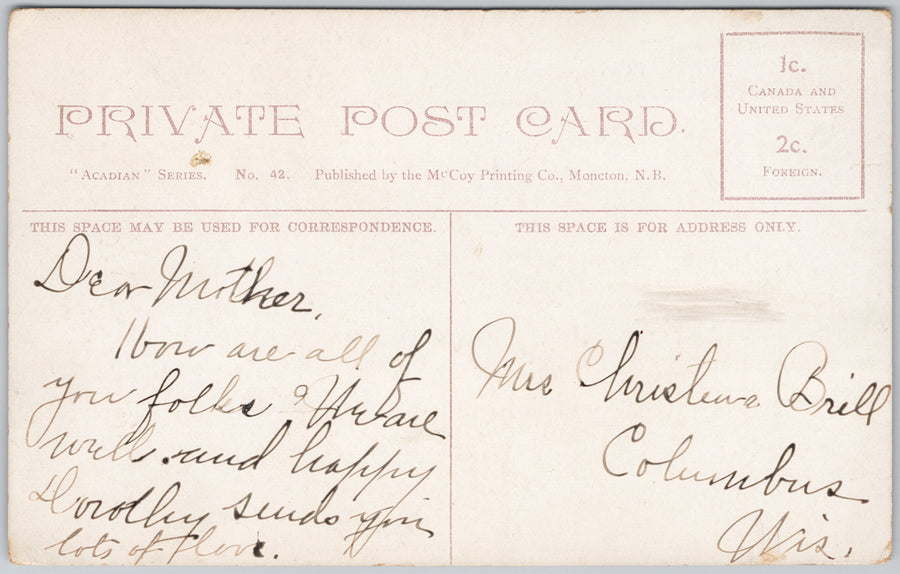 PRIVATE POST CARD.
"ACADIAN" SERIES. No. 42. Published by the McCoy Printing Co., Moncton, N.B.
1c.
CANADA AND
UNITED STATES
2c.
FOREIGN.
THIS SPACE MAY BE USED FOR CORRESPONDENCE.
Dear Mother,
How are all of
you folks? We are
well and happy
Dorothy sends you
lots of love.
THIS SPACE IS FOR ADDRESS ONLY.
Mrs Christena Brill
Columbus
Wis.